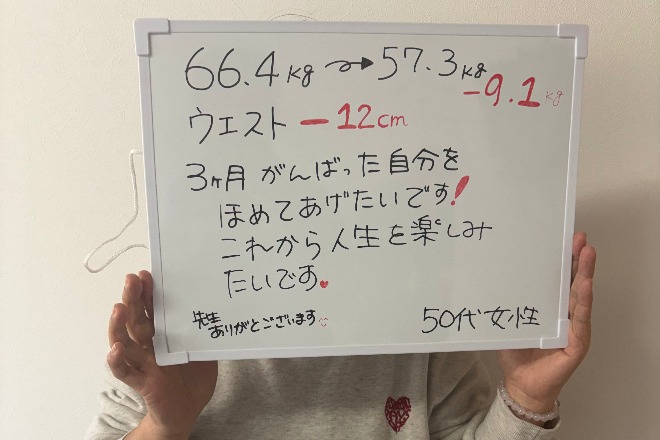 66.4kg → 57.3kg
-9.1kg
ウエスト -12cm
3ヶ月 がんばった自分を
ほめてあげたいです!
これから人生を楽しみ
たいです。
先生
ありがとございます
50代女性